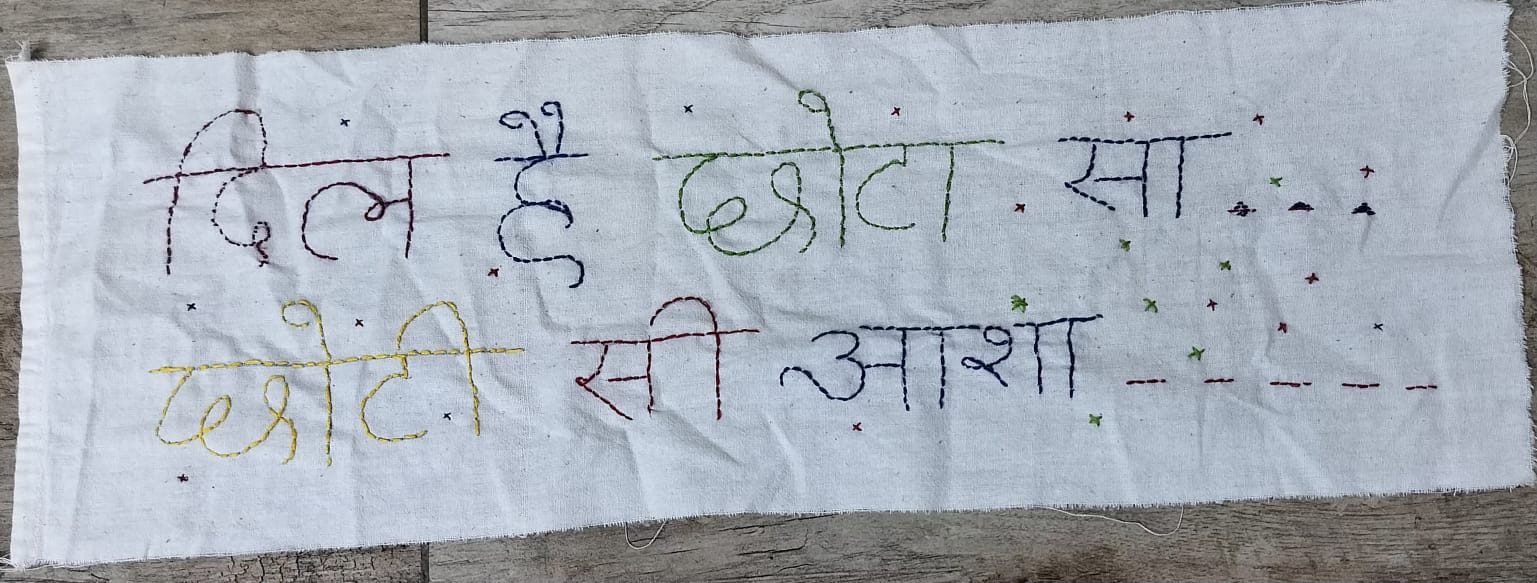 दिल हैं छोटा सा...
छोटी सी आशा _ _ _ _ _